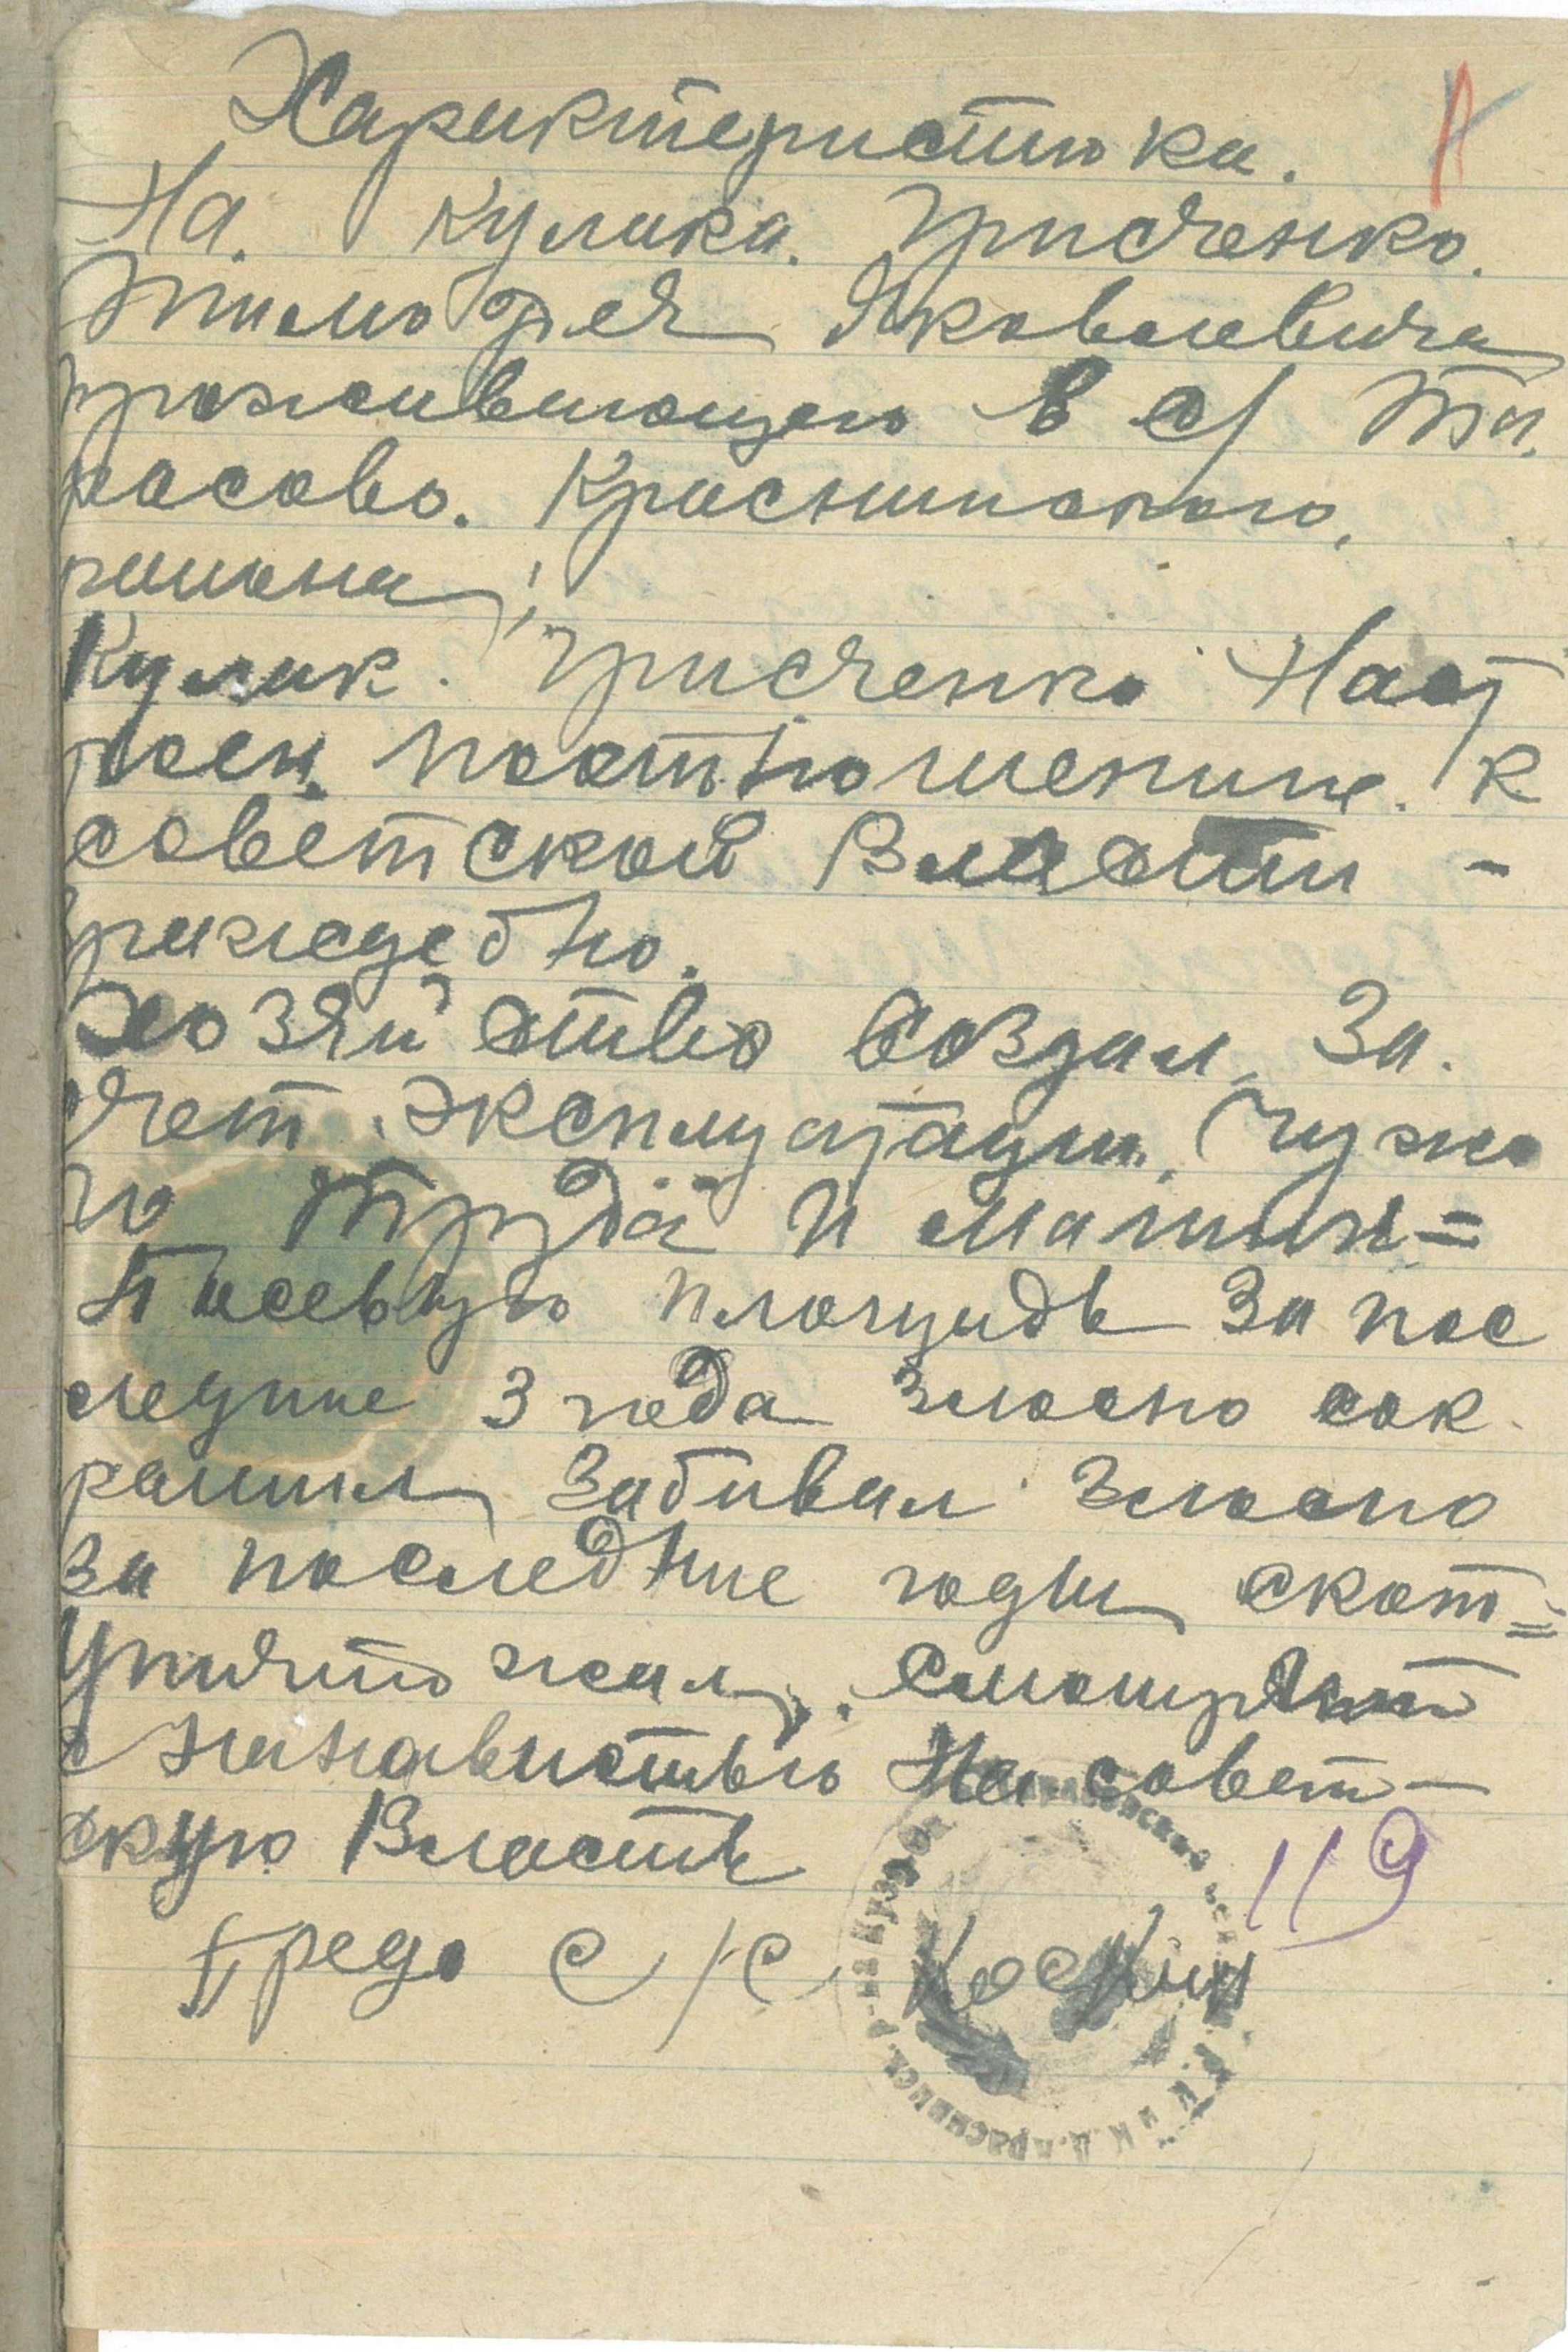 Характеристика.
На. Кулака. Грисченко.
Тимофея Яковлевича
проживающего в с/ Та.
расово. Краснинского,
раиона;
Кулак. Грисченко Наст
роен. поотношение. к
советской Власти -
враждебно.
Хозяйство создал За.
счет эксплуатации Чужо
го труда и машин=
Посевную площадь За пос
ледние 3 года злосно сок
ратил Забивал Злосно
за последние годы скот=
Уничтожал. смотрит
с нанавистью На совет-
скую Власть
119
Предс с/с